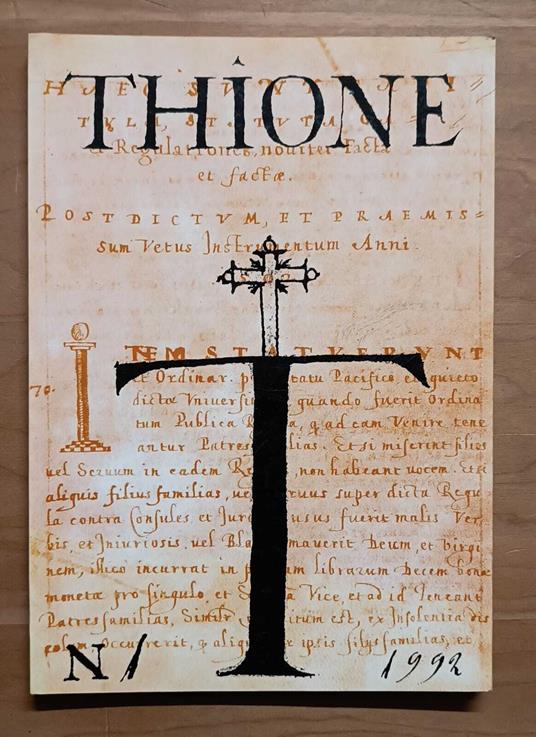 THIONE
HAEC SVNT
TVLI, STATVTA
et Regulationes, noviter Facta
et factæ.
POST DICTVM, ET PRAEMIS=
sum Vetus Instrumentum Anni.
ITEM STATVERVNT
70.
et Ordinar. statu Pacifico et quieto
dictæ Vniversi quando fuerit Ordina
tum Publica a, q, ad eam Venire tene
antur Patres lias. Et si miserint filios
vel Seruum in eadem Re , non habeant uocem. Et si
aliquis filius familias, ue ruus super dicta Regu
la contra Consules et Jur usus fuerit malis Ver
bis, et Iniuriosis, vel Bla mauerit Deum, et Virgi
nem, illico incurrat in um librarum Decem bonæ
monetæ pro singulo, et Vice, et ad id Teneant
Patres familias, Simil itum est, ex Insolentia dis
colom occurrerit, q aliq ipsis filys familias, et
N 1
1992